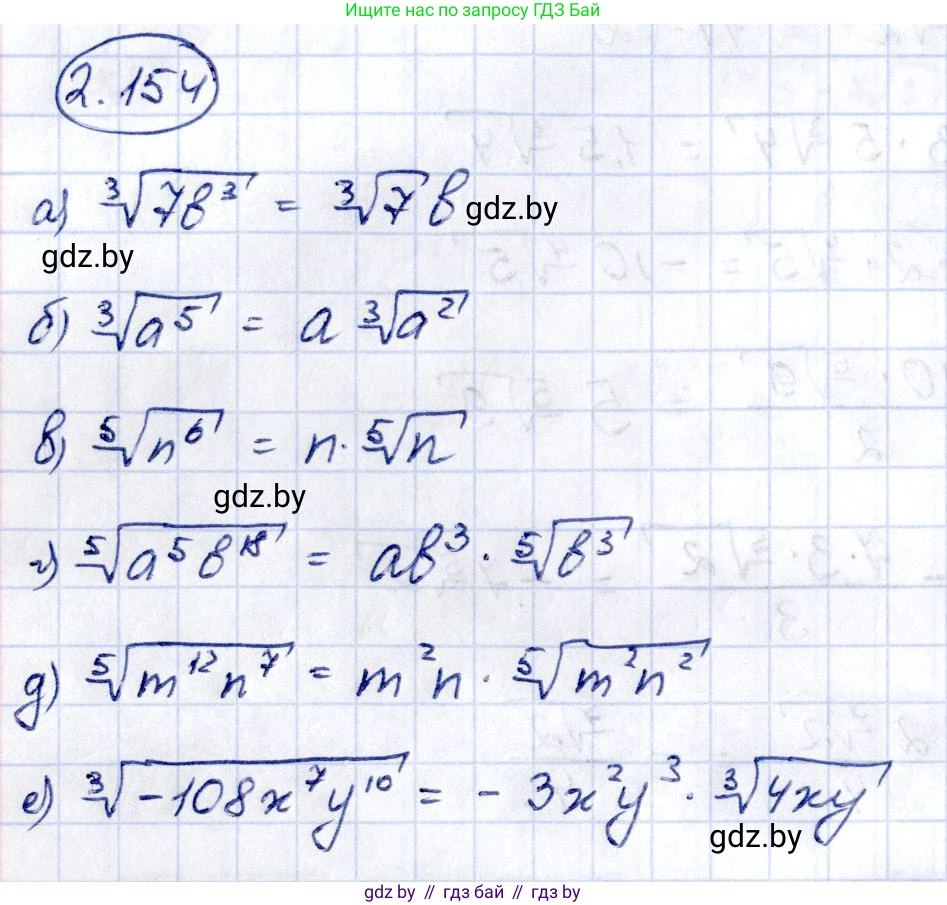 Ищите нас по запросу ГДЗ Бай
2.154
а) ∛(7b³) = ∛7 b gdz.by
gdz.by
б) ∛(a⁵) = a ∛(a²)
в) ⁵√(n⁶) = n · ⁵√n
gdz.by
г) ⁵√(a⁵b¹⁸) = ab³ · ⁵√(b³)
д) ⁵√(m¹²n⁷) = m²n · ⁵√(m²n²)
е) ∛(-108x⁷y¹⁰) = - 3x²y³ · ∛(4xy)
gdz.by
gdz.by // гдз бай // гдз by